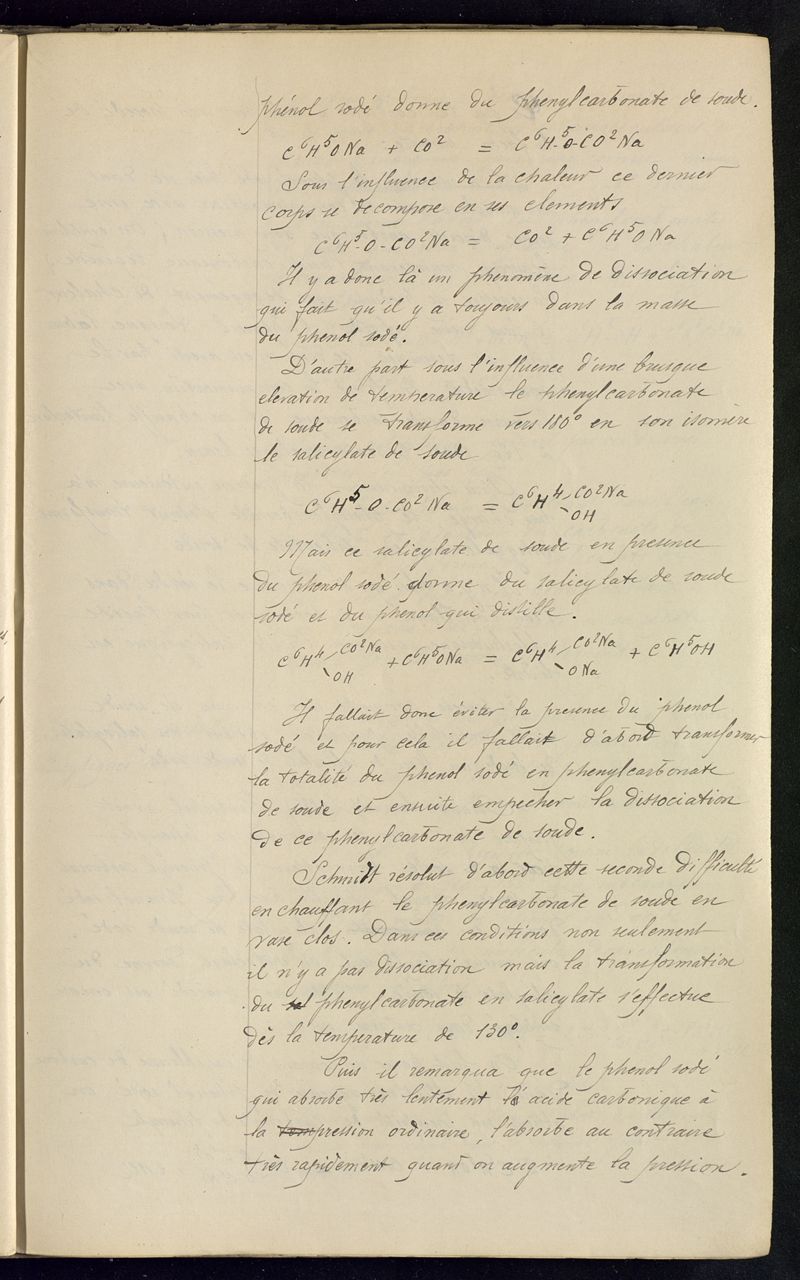 phénol sodé donne du phenylcarbonate de soude.
C⁶H⁵ONa + CO² = C⁶H⁵-O-CO²Na
Sous l'influence de la chaleur ce dernier
corps se decompose en ses elements
C⁶H⁵-O-CO²Na = CO² + C⁶H⁵ONa
Il y a donc là un phenomène de dissociation
qui fait qu'il y a toujours dans la masse
du phenol sodé.
D'autre part sous l'influence d'une brusque
elevation de temperature le phenylcarbonate
de soude se transforme vers 180° en son isomère
le salicylate de soude
C⁶H⁵-O-CO²Na = C⁶H⁴-CO²Na
-OH
Mais ce salicylate de soude en presence
du phenol sodé donne du salicylate de soude
sodé et du phenol qui distille.
C⁶H⁴-CO²Na + C⁶H⁵ONa = C⁶H⁴-CO²Na + C⁶H⁵OH
-OH -ONa
Il fallait donc éviter la presence du phenol
sodé et pour cela il fallait d'abord transformer
la totalité du phenol sodé en phenylcarbonate
de soude et ensuite empecher la dissociation
de ce phenylcarbonate de soude.
Schmidt résolut d'abord cette seconde difficulté
en chauffant le phenylcarbonate de soude en
vase clos. Dans ces conditions non seulement
il n'y a pas dissociation mais la transformation
du sal phenylcarbonate en salicylate s'effectue
dès la temperature de 130°.
Puis il remarqua que le phenol sodé
qui absorbe très lentement l'acide carbonique à
la pression ordinaire, l'absorbe au contraire
très rapidement quand on augmente la pression.